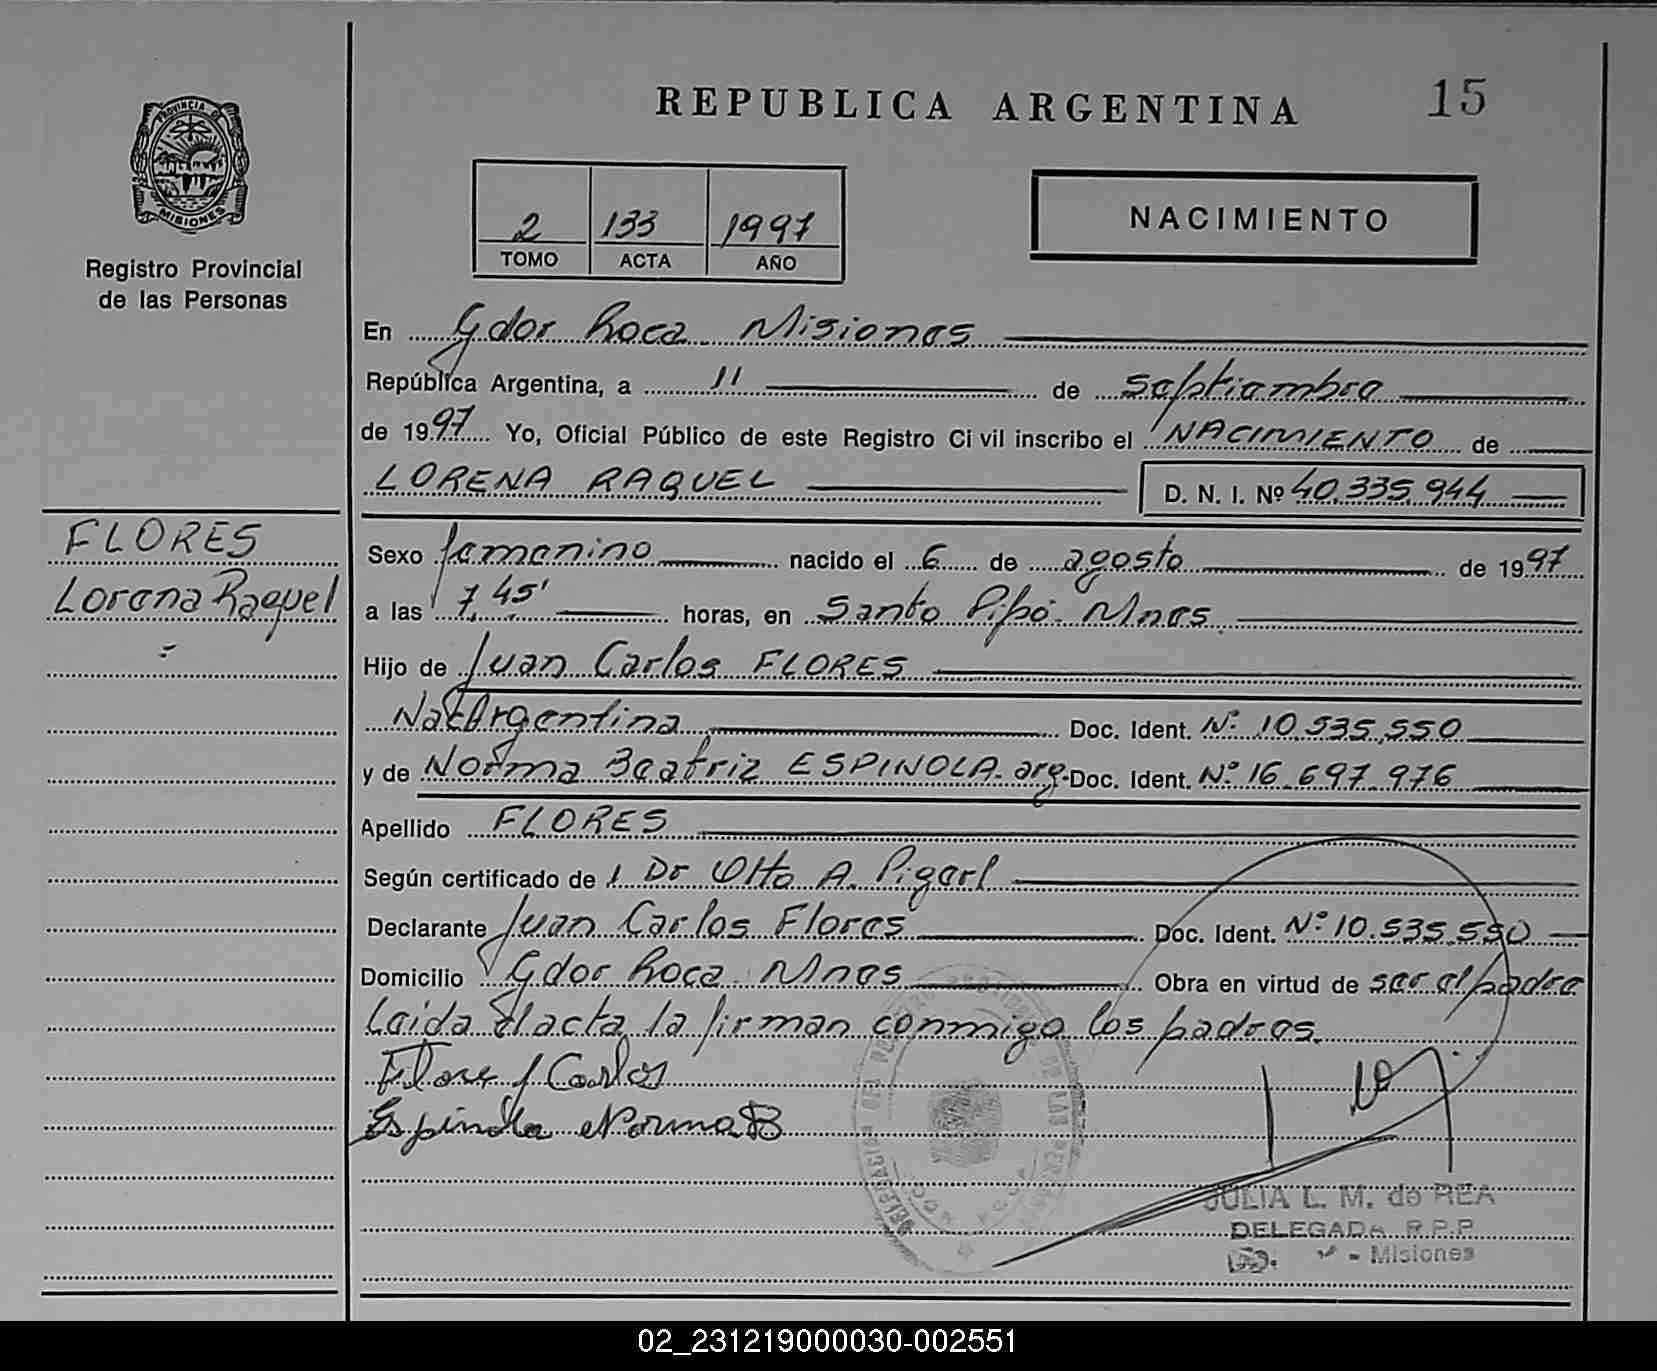 REPUBLICA ARGENTINA 15
PROVINCIA D
MISIONES
Registro Provincial
de las Personas
2 133 1997
TOMO ACTA AÑO
NACIMIENTO
En Gdor Roca Misiones
República Argentina, a 11 de septiembre
de 1997 Yo, Oficial Público de este Registro Civil inscribo el NACIMIENTO de
LORENA RAQUEL D. N. I. Nº 40.335.944
FLORES
Lorena Raquel
Sexo femenino nacido el 6 de agosto de 1997
a las 7,45' horas, en Santo Pipó Mnes
Hijo de Juan Carlos FLORES
Nac Argentina Doc. Ident. Nº 10.535.550
y de Norma Beatriz ESPINOLA. arg. Doc. Ident. Nº 16.697.976
Apellido FLORES
Según certificado de Dr Otto A.
Declarante Juan Carlos Flores Doc. Ident. Nº 10.535.550
Domicilio Gdor Roca Mnes Obra en virtud de ser el padre
Leida el acta la firman conmigo los padres.
Flores J Carlos
Espinola Norma B
JULIA L. M. de REA
DELEGADA R.P.P.
- Misiones
02_231219000030-002551